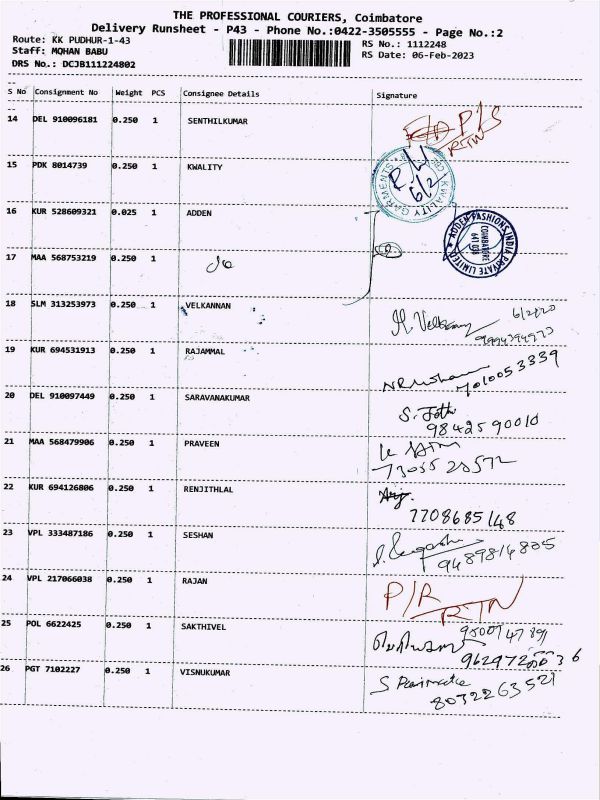 THE PROFESSIONAL COURIERS, Coimbatore
Delivery Runsheet - P43 - Phone No.:0422-3505555 - Page No.:2
Route: KK PUDHUR-1-43
RS No.: 1112248
Staff: MOHAN BABU
RS Date: 06-Feb-2023
DRS No.: DCJB111224802
S No Consignment No Weight PCS Consignee Details Signature
14 DEL 910096181 0.250 1 SENTHILKUMAR
P/S
RTN
15 PDK 8014739 0.250 1 KWALITY
KWALITY GARMENTS
6/2
16 KUR 528609321 0.025 1 ADDEN
ADDEN FASHIONS INDIA PRIVATE LIMITED
COIMBATORE
17 MAA 568753219 0.250 1 do
18 SLM 313253973 0.250 1 VELKANNAN
19 KUR 694531913 0.250 1 RAJAMMAL
7010053339
20 DEL 910097449 0.250 1 SARAVANAKUMAR
9842590010
21 MAA 568479906 0.250 1 PRAVEEN
22 KUR 694126806 0.250 1 RENJITHLAL
7708685148
23 VPL 333487186 0.250 1 SESHAN
9489814805
24 VPL 217066038 0.250 1 RAJAN
P/R
RTN
25 POL 6622425 0.250 1 SAKTHIVEL
26 PGT 7102227 0.250 1 VISNUKUMAR
8032263521